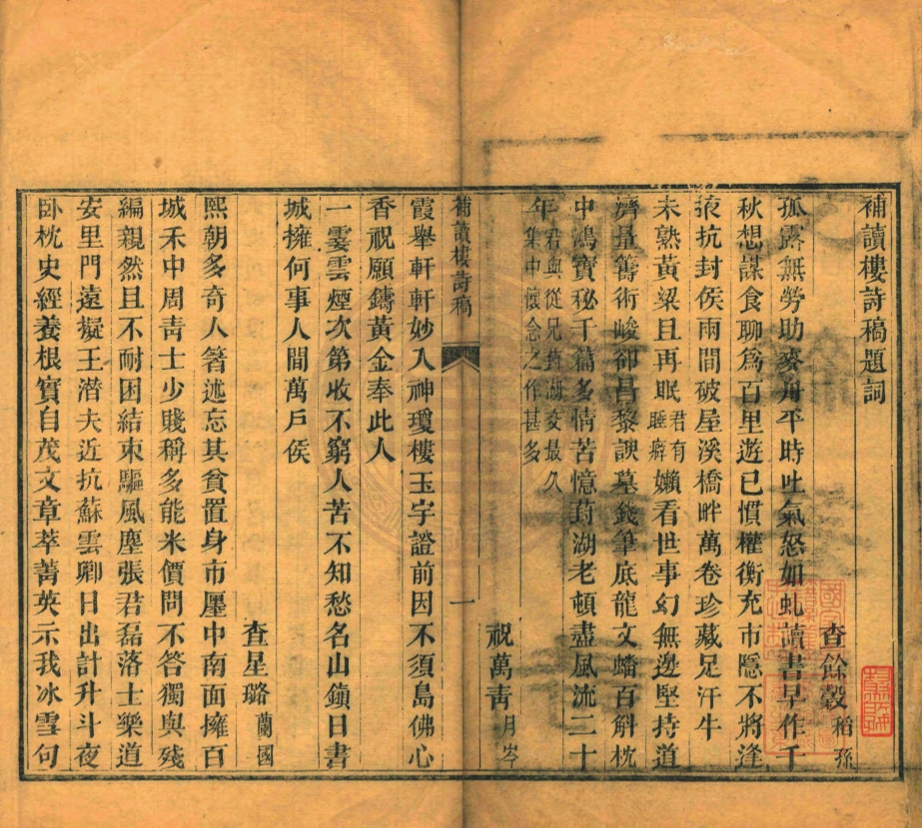 補讀樓詩稿題詞
查餘穀 稻孫
孤露無勞助麥舟平時吐氣怒如虬讀書早作千
秋想謀食聊為百里遊已慣權衡充市隱不將逢
掖抗封侯雨間破屋溪橋畔萬卷珍藏足汗牛
未熟黃粱且再眠君有睡癖嬾看世事幻無邊堅持道
濟量籌術峻卻昌黎諛墓錢筆底龍文蟠百斛枕
中鴻寶秘千篇多情苦憶葑湖老頓盡風流二十
年君與從兄葑湖交最久集中懷念之作甚多
祝萬青 月岑
補讀樓詩稿 一
霞舉軒軒妙入神瓊樓玉宇證前因不須島佛心
香祝願鑄黃金奉此人
一霎雲煙次第收不窮人苦不知愁名山鎮日書
城擁何事人間萬戶侯
查星璐 蘭國
熙朝多奇人箸述忘其貧置身市廛中南面擁百
城禾中周青士少賤稱多能米價問不答獨與殘
編親然且不耐困結束驅風塵張君磊落士樂道
安里門遠擬王潛夫近抗蘇雲卿日出計升斗夜
臥枕史經養根實自茂文章萃菁英示我冰雪句